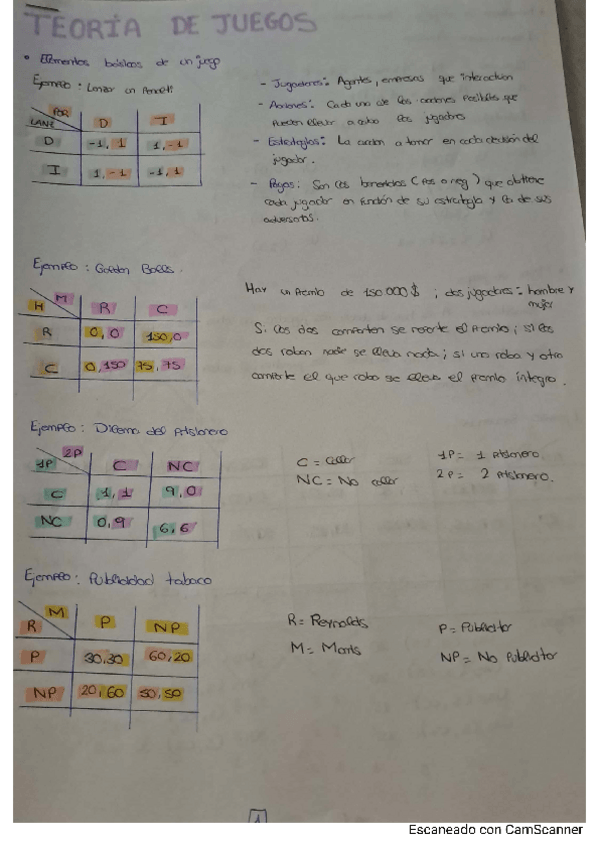 TEORÍA DE JUEGOS
• Elementos básicos de un juego
Ejemplo: Lanzar un Penalti
POR
LANZ
D I
D -1, 1 1, -1
I 1, -1 -1, 1
- Jugadores: Agentes, empresas que interactuan
- Acciones: Cada una de las acciones posibles que
pueden llevar a cabo los jugadores
- Estrategias: La accion a tomar en cada decisión del
jugador.
- Pagos: Son los beneficios (pos o neg) que obtiene
cada jugador en función de su estrategia y la de sus
adversarios.
Ejemplo: Golden Balls.
M
H
R C
R 0, 0 150, 0
C 0, 150 75, 75
Hay un premio de 150 000 $ ; dos jugadores: hombre y
mujer
Si los dos comparten se reparte el premio; si los
dos roban nadie se lleva nada; si uno roba y otro
comparte el que roba se lleva el premio integro.
Ejemplo: Dilema del Prisionero
2P
1P
C NC
C 1, 1 9, 0
NC 0, 9 6, 6
C = Callar
NC = No callar
1P = 1 Prisionero.
2P = 2 Prisionero.
Ejemplo: Publicidad tabaco
M
R
P NP
P 30, 30 60, 20
NP 20, 60 50, 50
R = Reynolds
M = Morris
P = Publicitar
NP = No Publicitar
1
Escaneado con CamScanner